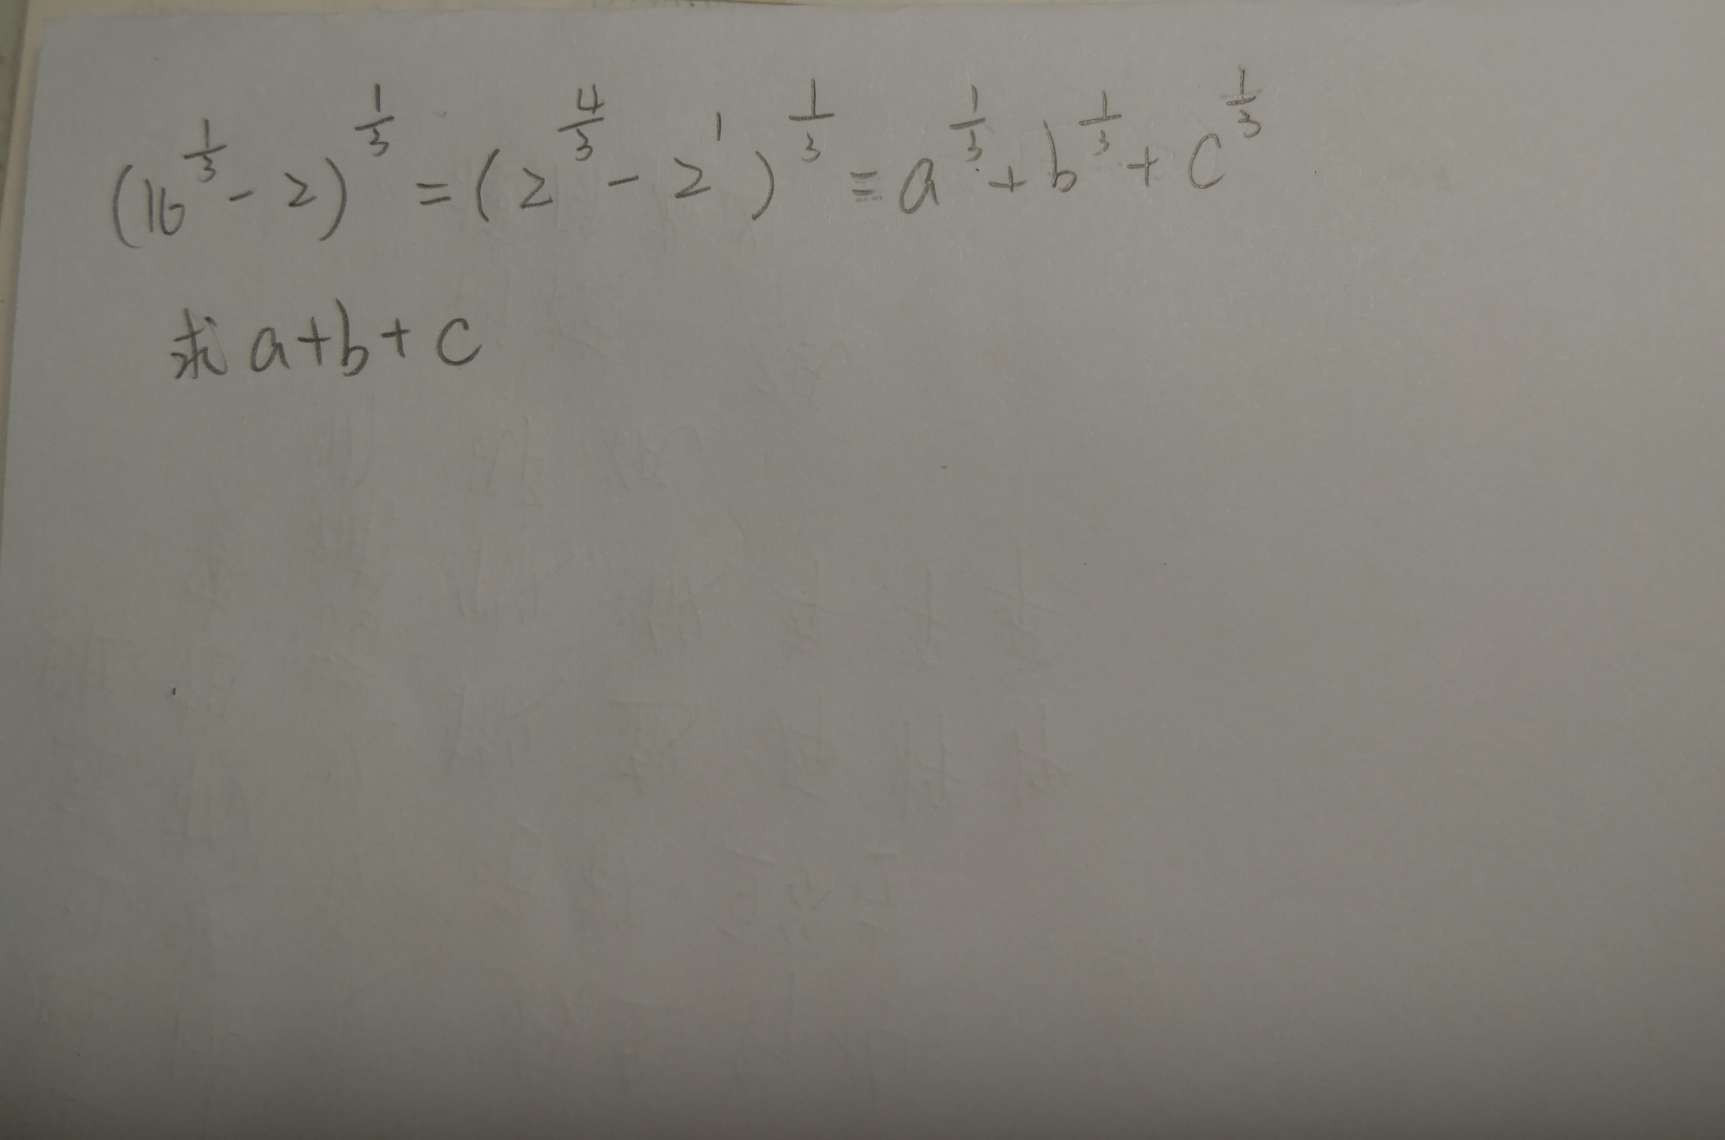 (16^{\frac{1}{3}} - 2)^{\frac{1}{3}} = (2^{\frac{4}{3}} - 2^{1})^{\frac{1}{3}} = a^{\frac{1}{3}} + b^{\frac{1}{3}} + c^{\frac{1}{3}}
求 a+b+c